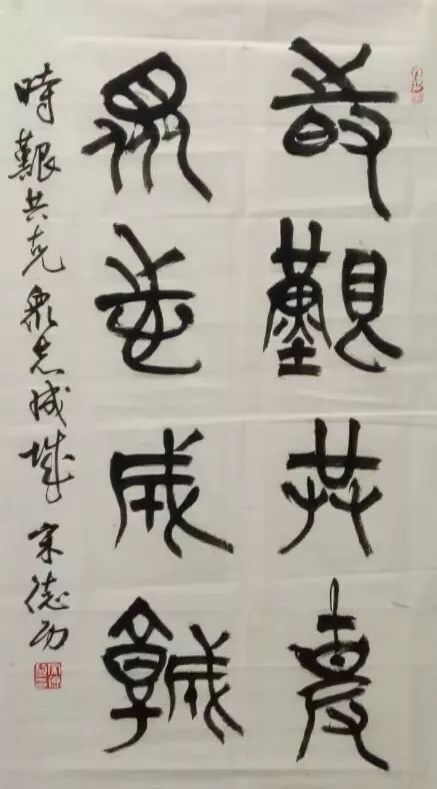 時艱共克
眾志成城
時艱共克眾志成城 宋德功